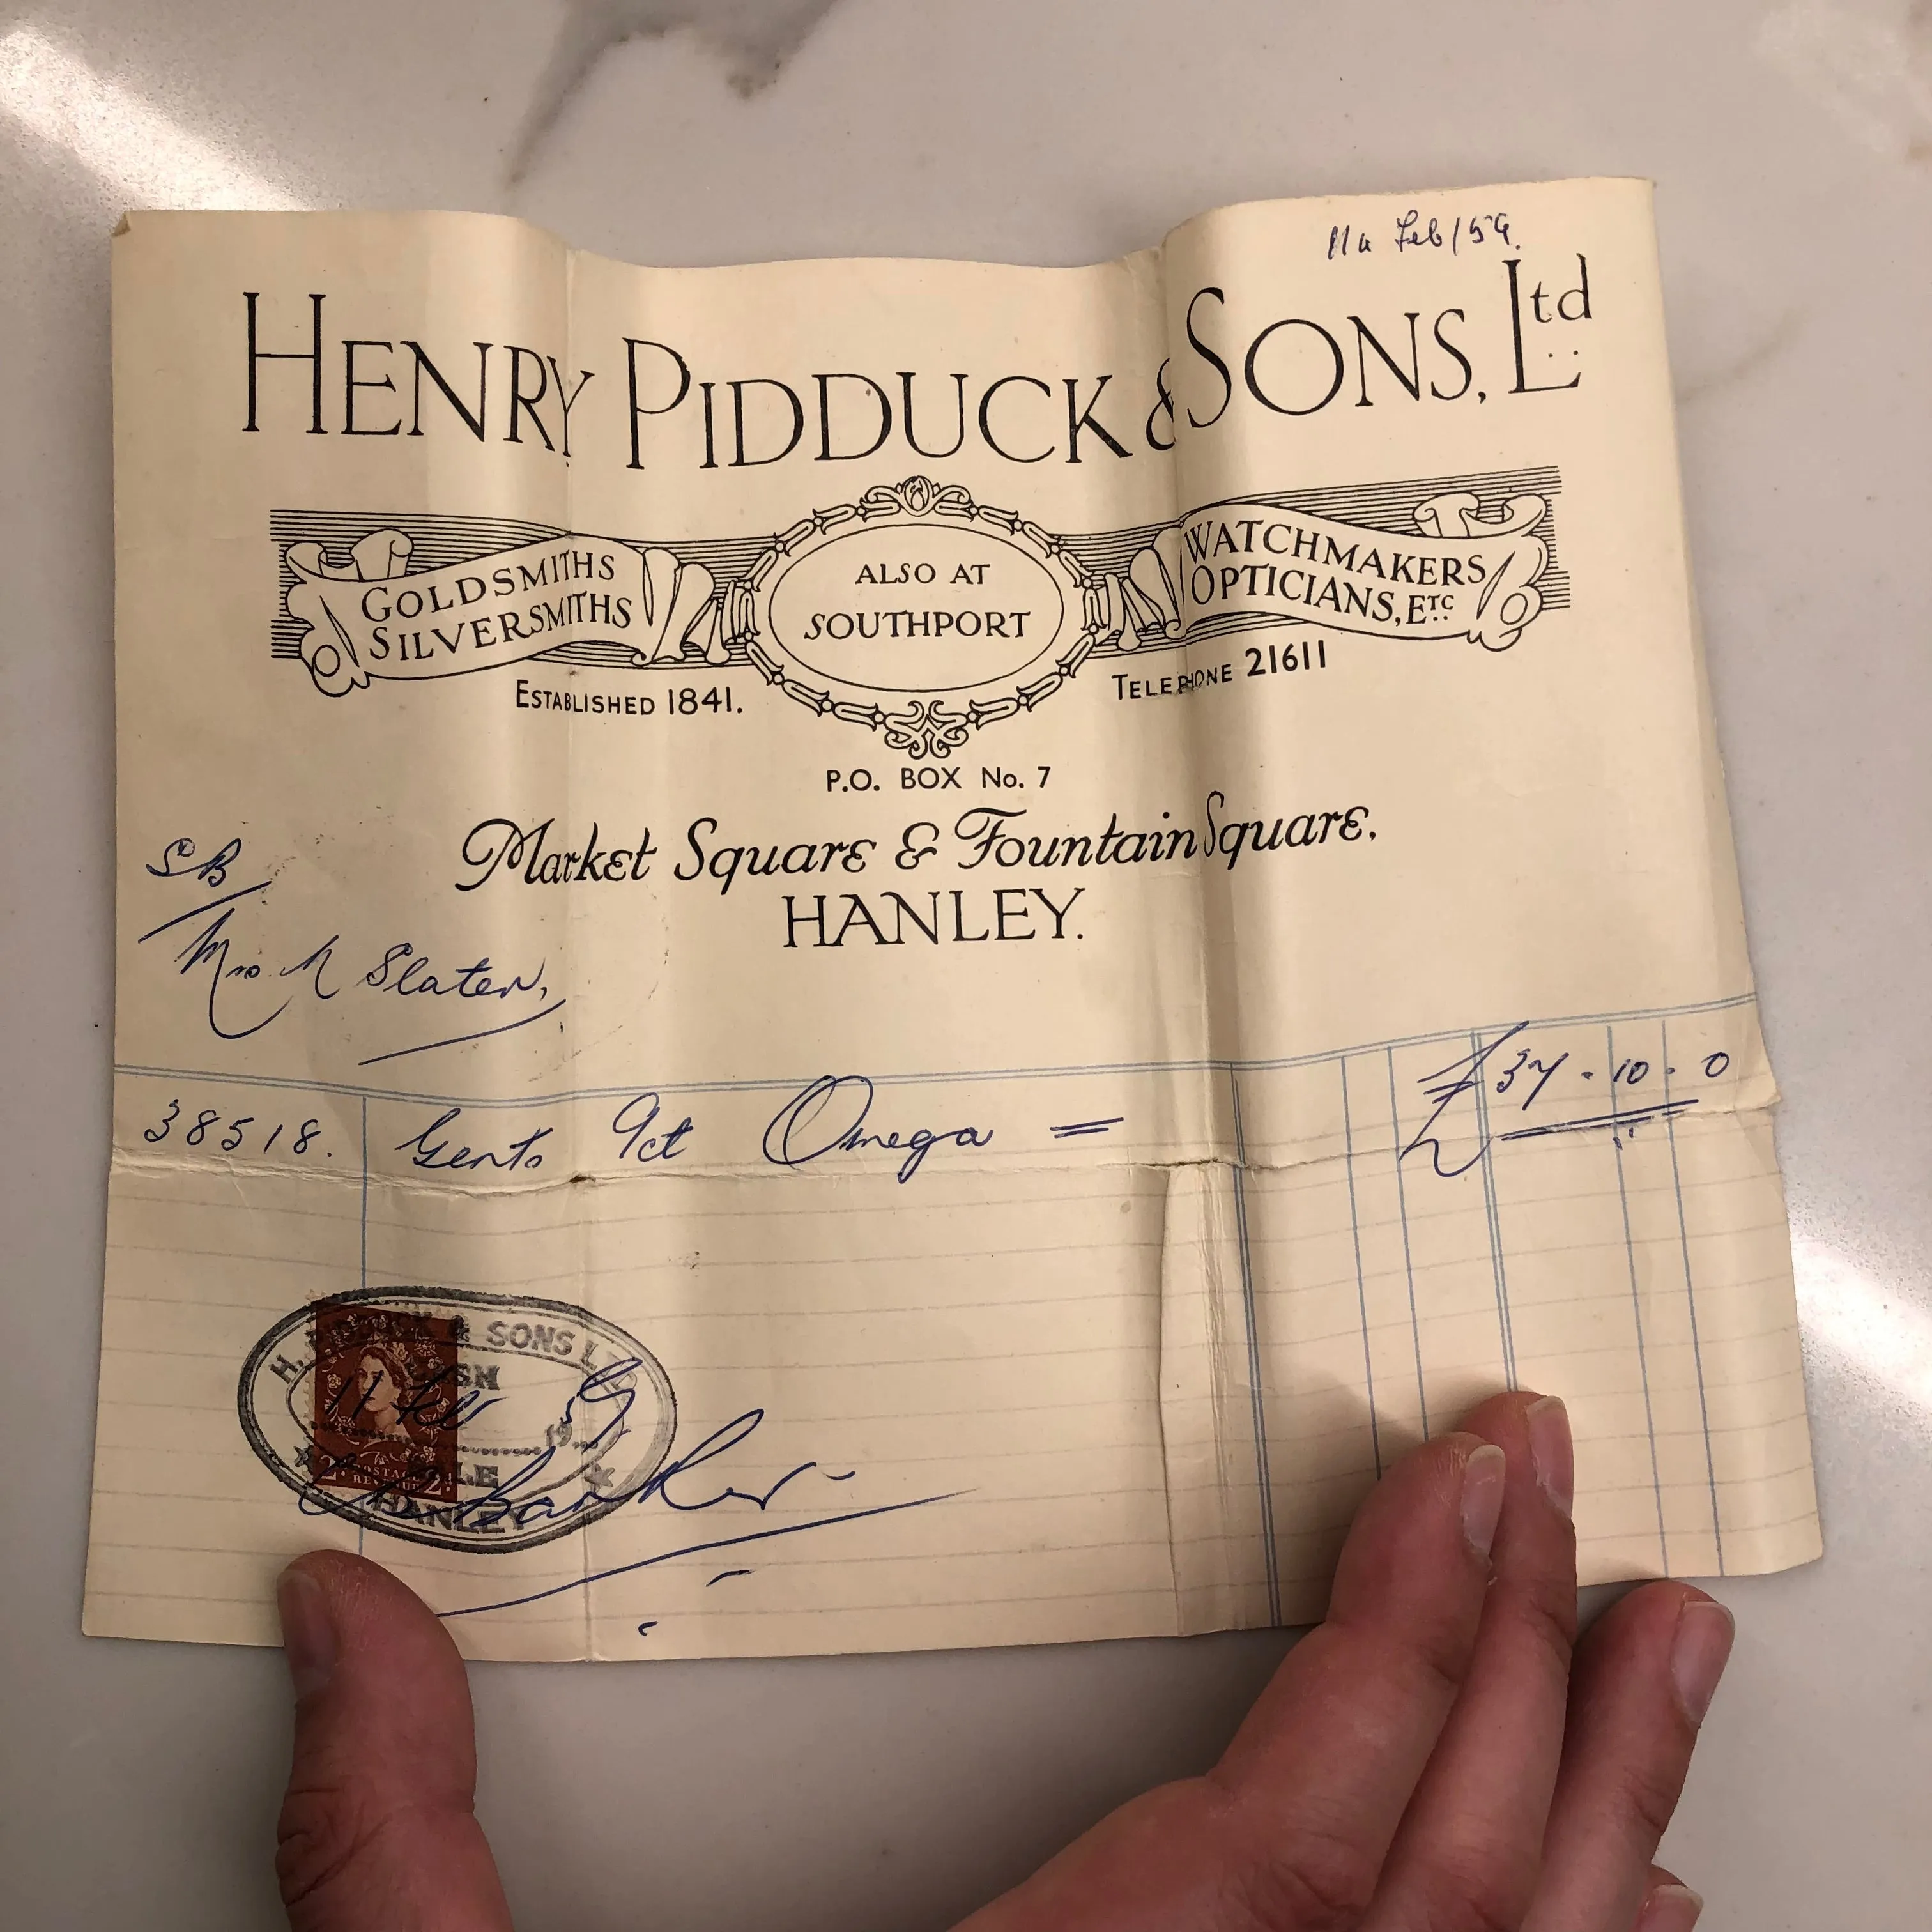 11th Feb/59.
HENRY PIDDUCK & SONS, Ltd
GOLDSMITHS
SILVERSMITHS
ALSO AT
SOUTHPORT
WATCHMAKERS
OPTICIANS, ETC
ESTABLISHED 1841.
TELEPHONE 21611
P.O. BOX No. 7
Market Square & Fountain Square,
HANLEY.
SB
Mrs M Slater,
38518. Gents 9ct Omega = £37-10-0
H. PIDDUCK & SONS LTD
11 Feb 1959
2 POSTAGE 2
HANLEY
Barker